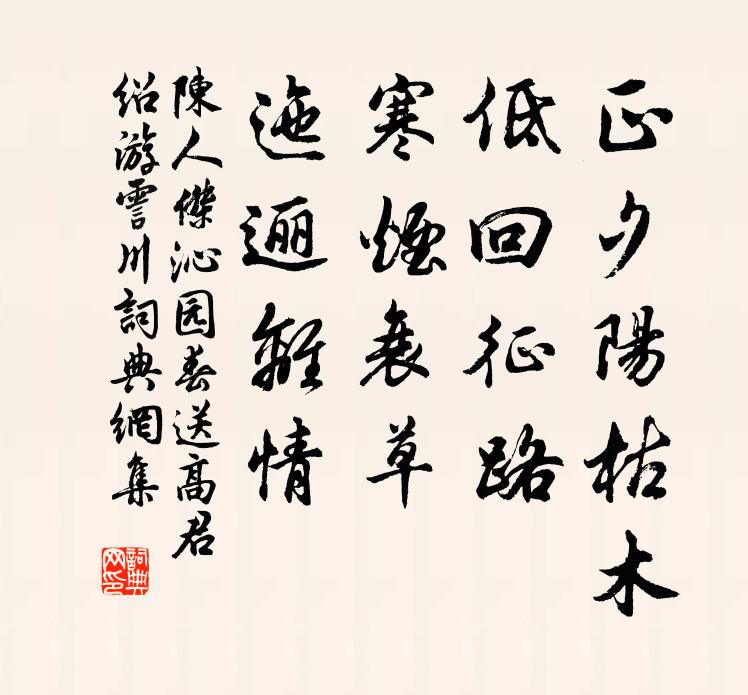 正夕陽枯木
低回征路
寒煙衰草
迤邐離情
陳人傑沁园春送高君
紹游霅川詞典網集
詞典网印